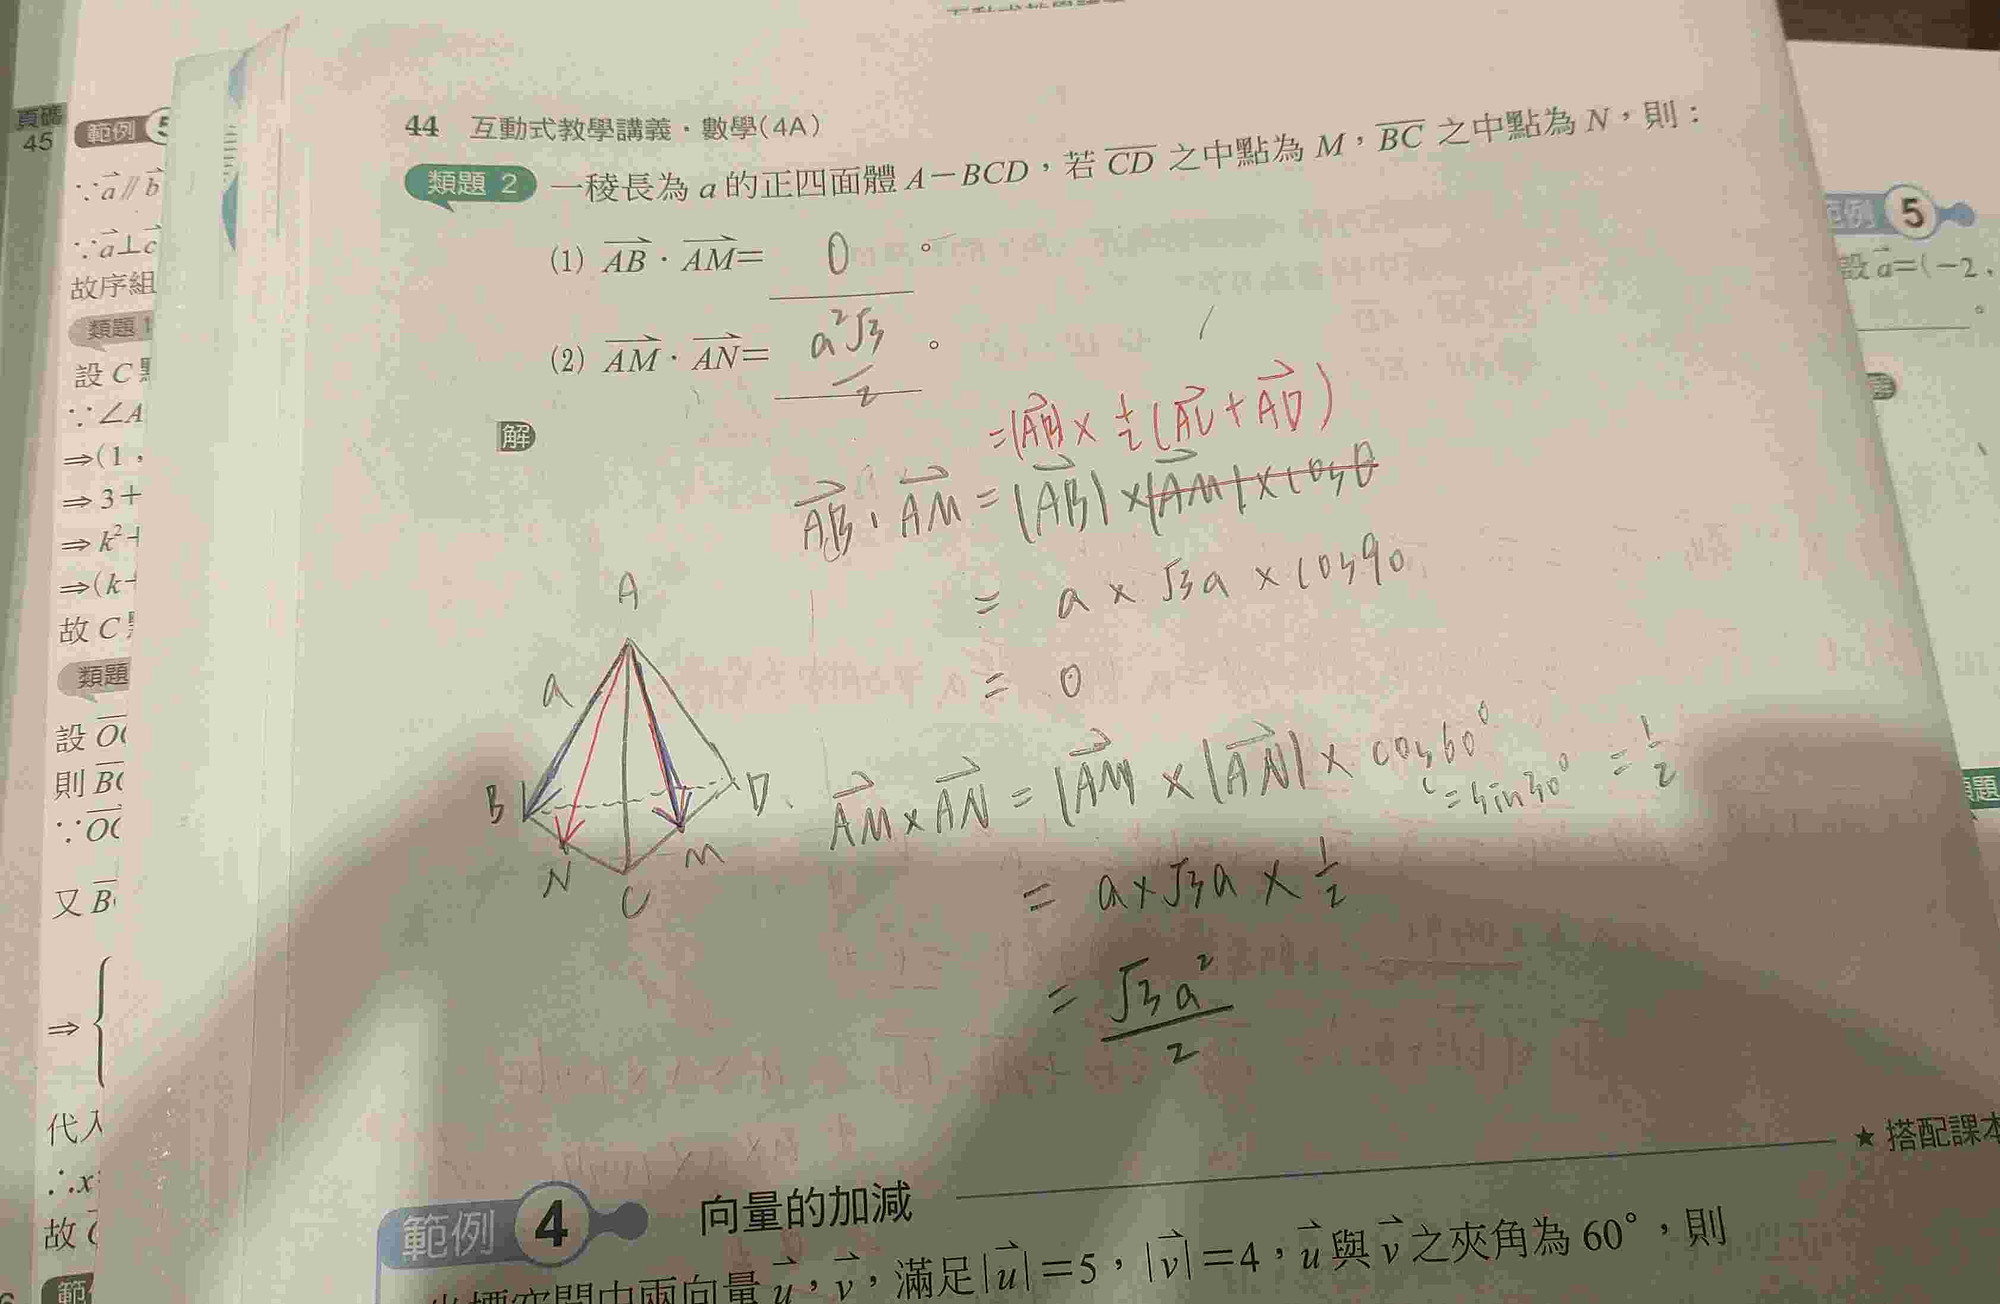 頁碼
45
範例 5
∵a∥b
∵a⊥c
故序組
類題 1
設 C 點
∵∠A
⇒(1,
⇒3+
⇒k²+
⇒(k-
故 C 點
類題
設 OC
則 BC
∵OC
又 B
⇒{
代入
∴x
故
範
44 互動式教學講義・數學(4A)
類題 2 一稜長為 a 的正四面體 A－BCD,若 CD 之中點為 M,BC 之中點為 N,則:
(1) AB・AM= 0 。
(2) AM・AN= a²√3/2 。
解
=|AB|×1/2(AC+AD)
AB・AM=|AB|×|AM|×cosθ
= a×√3a×cos90
= 0
A
a
B
D
N
C
M
AM×AN=|AM|×|AN|×cos60°
=sin30°=1/2
= a×√3a×1/2
= √3a²/2
★搭配課本
範例 4 向量的加減
空間中兩向量 u,v,滿足|u|=5,|v|=4,u 與 v 之夾角為 60°,則
範例 5
設 a=(-2,
。
解
類題